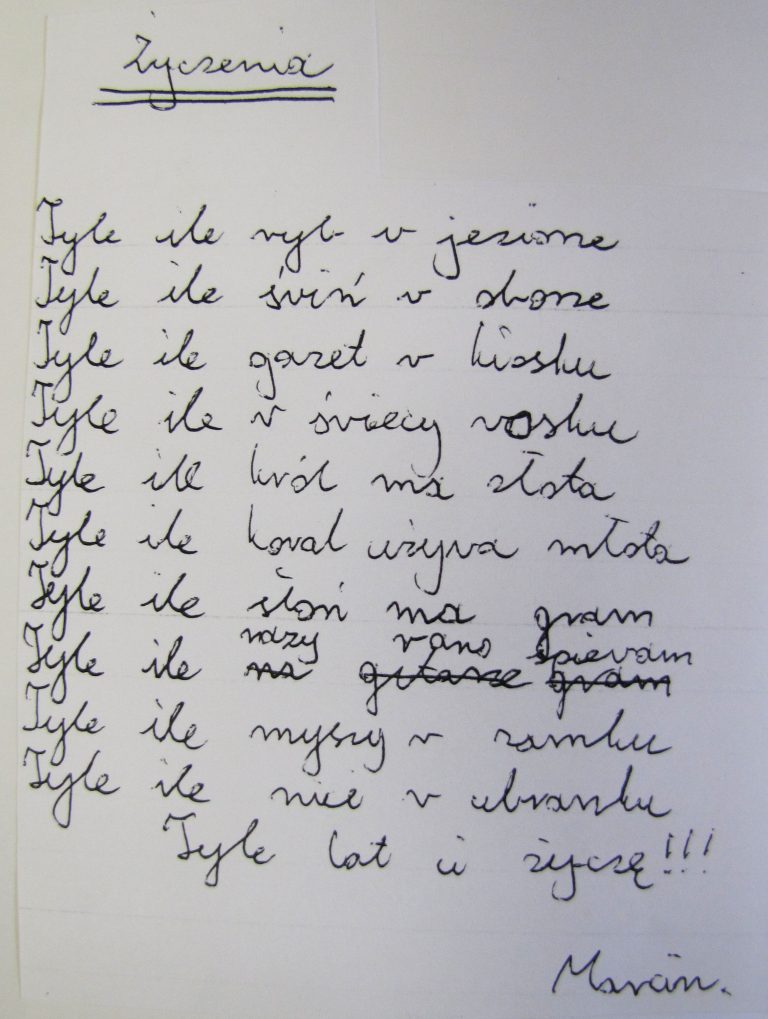 Życzenia
Tyle ile ryb w jeziorze
Tyle ile świń w oborze
Tyle ile gazet w kiosku
Tyle ile w świecy wosku
Tyle ile król ma złota
Tyle ile kowal używa młota
Tyle ile słoń ma gram
razy rano śpiewam
Tyle ile na gitarze gram
Tyle ile myszy w zamku
Tyle ile nici w ubranku
Tyle lat ci życzę!!!
Marcin.